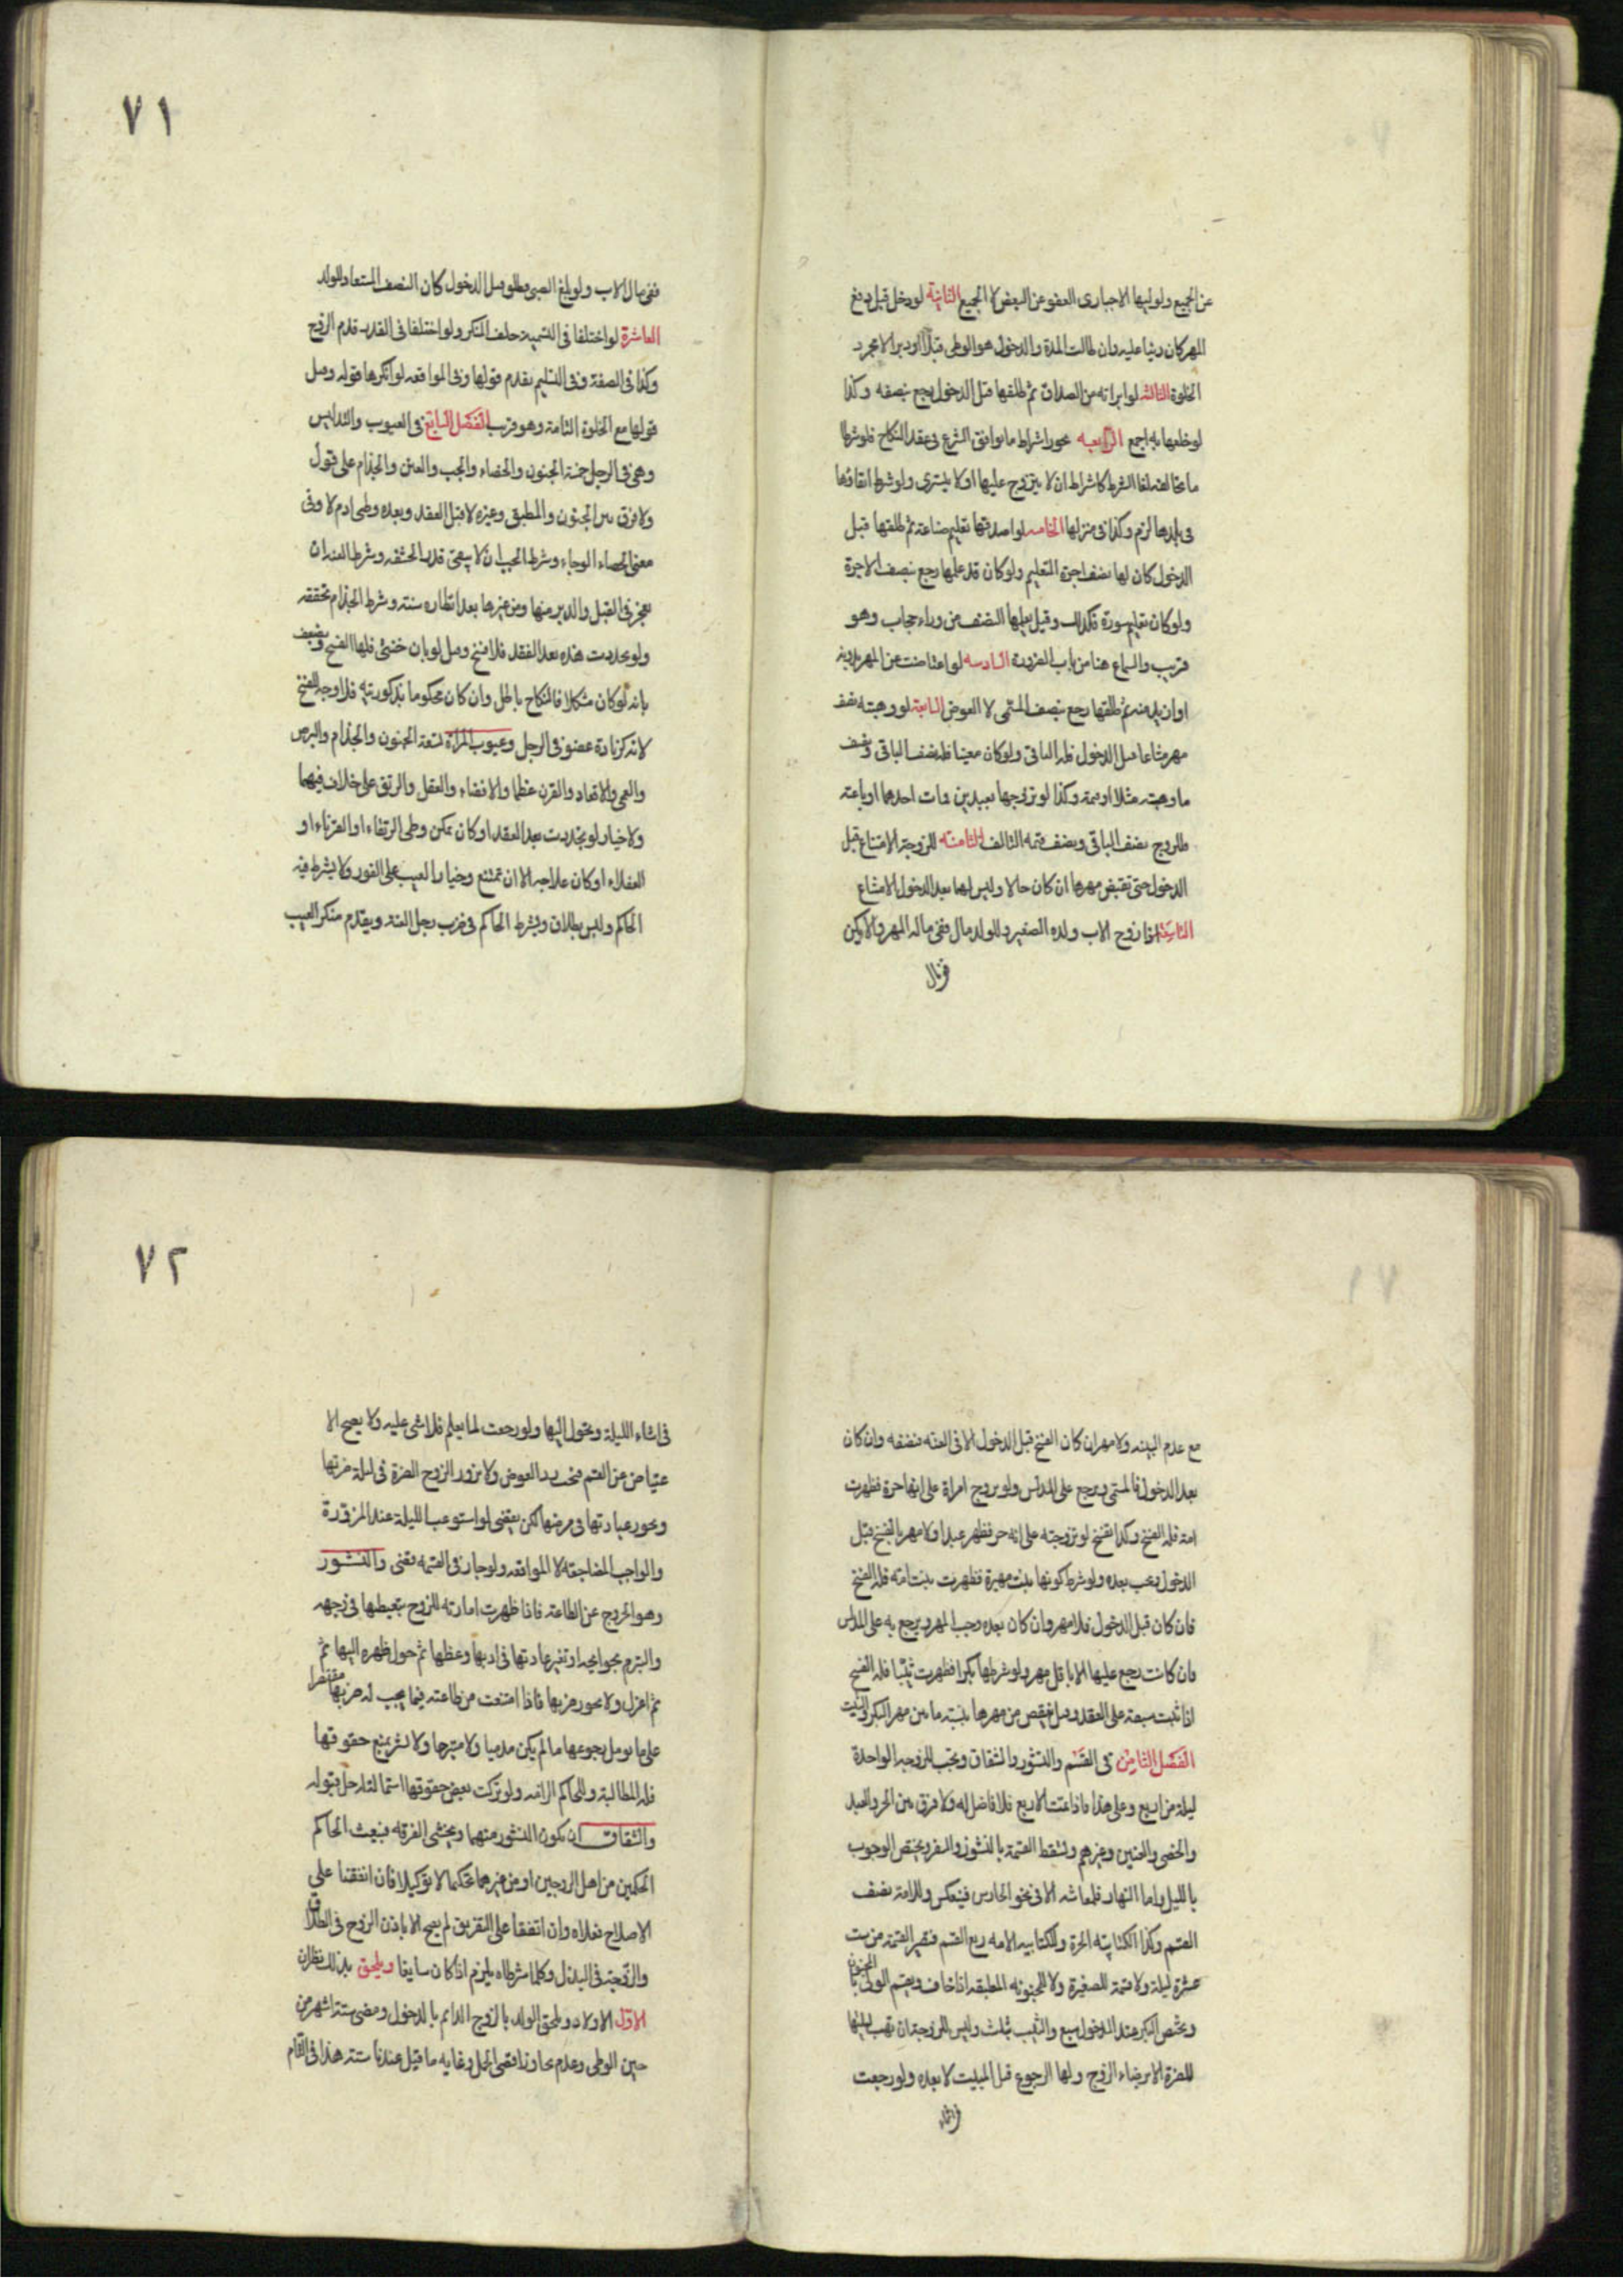 عن الجميع ولوليها الاجبارى العفو عن البعض لا الجميع الثانية لو دخل قبل دفع
المهر كان دينا عليه وان طالت المدة والدخول هو الوطى قبلا او دبرا لا مجرد
الخلوة الثالثه لو ابراته من الصداق ثم طلقها قبل الدخول رجع بنصفه وكذا
لو خلعها به اجمع الرابعه يجوز اشتراط ما يوافق الشرع فى عقد النكاح فلو شرط
ما يخالفه لغا الشرط كاشتراط ان لا يتزوج عليها او لا يتسرى ولو شرط ابقاؤها
فى بلدها لزم وكذا فى منزلها الخامسه لو اصدقها تعليم صناعة ثم طلقها قبل
الدخول كان لها نصف اجرة التعليم ولو كان قد علمها رجع بنصف الاجرة
ولو كان تعليم سورة فكذلك وقيل يعلمها النصف من وراء حجاب وهو
قريب والسماع هنا من باب الضرورة السادسه لو اعتاضت عن المهر بدونه
او ازيد منه ثم طلقها رجع بنصف المسمى لا العوض السابعة لو وهبته نصف
مهر مشاعا قبل الدخول فله الباقى ولو كان معينا فله نصف الباقى ونصف
ما وهبته مثلا او قيمة وكذا لو تزوجها بعبدين فمات احدهما او باعته
فللزوج نصف الباقى ونصف قيمه التالف الثامنه للزوجة الامتناع قبل
الدخول حتى تقبض مهرها ان كان حالا وليس لها بعد الدخول الامتناع
التاسعة اذا زوج الاب ولده الصغير وللولد مال ففى ماله المهر والا يكن
فى مال
٧١
ففى مال الاب ولو بلغ الصبى وطلق قبل الدخول كان النصف المستعاد للولد
العاشرة لو اختلفا فى التسمية حلف المنكر ولو اختلفا فى القدر قدم الزوج
وكذا فى الصفة وفى التسليم يقدم قولها وفى المواقعه لو انكرها قوله وقيل
قولها مع الخلوة التامة وهو قريب الفصل السابع فى العيوب والتدليس
وهى فى الرجل خمسة الجنون والخصاء والجب والعنن والجذام على قول
ولا فرق بين الجنون المطبق وغيره لا قبل العقد وبعده وطى ام لا وفى
معنى الخصاء الوجاء وشرط الجب ان لا يبقى قدر الحشفه وشرط العنه ان
يعجز فى القبل والدبر منها ومن غيرها بعد انتظاره سنة وشرط الجذام تحققه
ولو تجددت هذه بعد العقد فلا فسخ وقيل لو بان خنثى فلها الفسخ ويضعف
بانه لو كان مشكلا فالنكاح باطل وان كان محكوما بذكوريته فلا وجه للفسخ
لانه كزيادة عضو فى الرجل وعيوب المراة تسعة الجنون والجذام والبرص
والعمى والاقعاد والقرن عظما والافضاء والعفل والرتق على خلاف فيهما
ولا خيار لو تجددت بعد العقد او كان يمكن وطى الرتقاء او القرناء او
العفلاء او كان علاجه الا ان تمتنع وخيار العيب على الفور ولا يشترط فيه
الحاكم وليس بطلاق ويشترط الحاكم فى ضرب اجل العنه ويقدم منكر العيب
مع عدم البينه ولا مهر ان كان الفسخ قبل الدخول الا فى العنه فنصفه وان كان
بعد الدخول فالمسمى ويرجع على المدلس ولو تزوج امراة على انها حرة فظهرت
امة فله الفسخ وكذا تفسخ لو تزوجته على انه حر فظهر عبدا ولا مهر بالفسخ قبل
الدخول ويجب بعده ولو شرط كونها بنت مهيرة فظهرت بنت امة فله الفسخ
فان كان قبل الدخول فلا مهر وان كان بعده وجب المهر ويرجع به على المدلس
فان كانت رجع عليها الا باقل مهر ولو شرطها بكرا فظهرت ثيبا فله الفسخ
اذا ثبت سبقه على العقد وقيل ينقص من مهرها بنسبة ما بين مهر البكر والثيب
الفصل الثامن فى القسم والنشوز والشقاق ويجب للزوجه الواحدة
ليلة من اربع وعلى هذا فاذا تمت الاربع فلا فاضل له ولا فرق بين الحر والعبد
والخصى والعنين وغيرهم وتسقط القسمة بالنشوز والسفر ويختص الوجوب
بالليل واما النهار فلمعاشه الا فى نحو الحارس فينعكس وللامة نصف
القسم وكذا الكتابيه الحرة وللكتابيه الامه ربع القسم فتصير القسمة من ست
عشرة ليلة ولا قسمة للصغيرة ولا للمجنونه المطبقه اذا خاف ويقسم الولى بالمجنون
ويختص البكر عند الدخول بسبع والثيب بثلث وليس للزوجة ان تهب ليلتها
للضرة الا برضاء الزوج ولها الرجوع قبل المبيت لا بعده ولو رجعت
فى اثناء
٧٢
فى اثناء الليلة وتحول اليها ولو رجعت لما يعلم فلا شى عليه ولا يصح الا
عتياض عن القسم فيجب رد العوض ولا يزور الزوج الضرة فى ليلة ضرتها
ويجوز عيادتها فى مرضها لكن يقضى لو استوعب الليلة عند المزورة
والواجب المضاجعه لا المواقعه ولو جار فى القسمه يقضى والنشوز
وهو الخروج عن الطاعة فاذا ظهرت امارته للزوج بتقطيبها فى وجهه
والتبرم بحوايجه او تغير عادتها فى ادبها وعظها ثم حول ظهره اليها ثم
ثم اعتزل ولا يجوز ضربها فاذا امتنعت من طاعته فيما يجب له ضربها مقتصرا
على ما يومل رجوعها ما لم يكن مدميا ولا مبرحا ولو نشز بمنع حقوقها
فلها المطالبة وللحاكم الزامه ولو تركت بعض حقوقها استمالة له حل قبوله
والشقاق ان يكون النشوز منهما ويخشى الفرقه فيبعث الحاكم
الحكمين من اهل الزوجين او من غيرهما تحكيما لا توكيلا فان اتفقا على
الاصلاح فعلاه وان اتفقا على التفريق لم يصح الا باذن الزوج فى الطلاق
والزوجة فى البذل وكلما شرطاه يلزم اذا كان سايغا ويلحق بذلك نظران
الاول الاولاد ويلحق الولد بالزوج الدايم بالدخول ومضى ستة اشهر من
حين الوطى وعدم تجاوز اقصى الحمل وغايه ما قيل عندنا سنة هذا فى التام